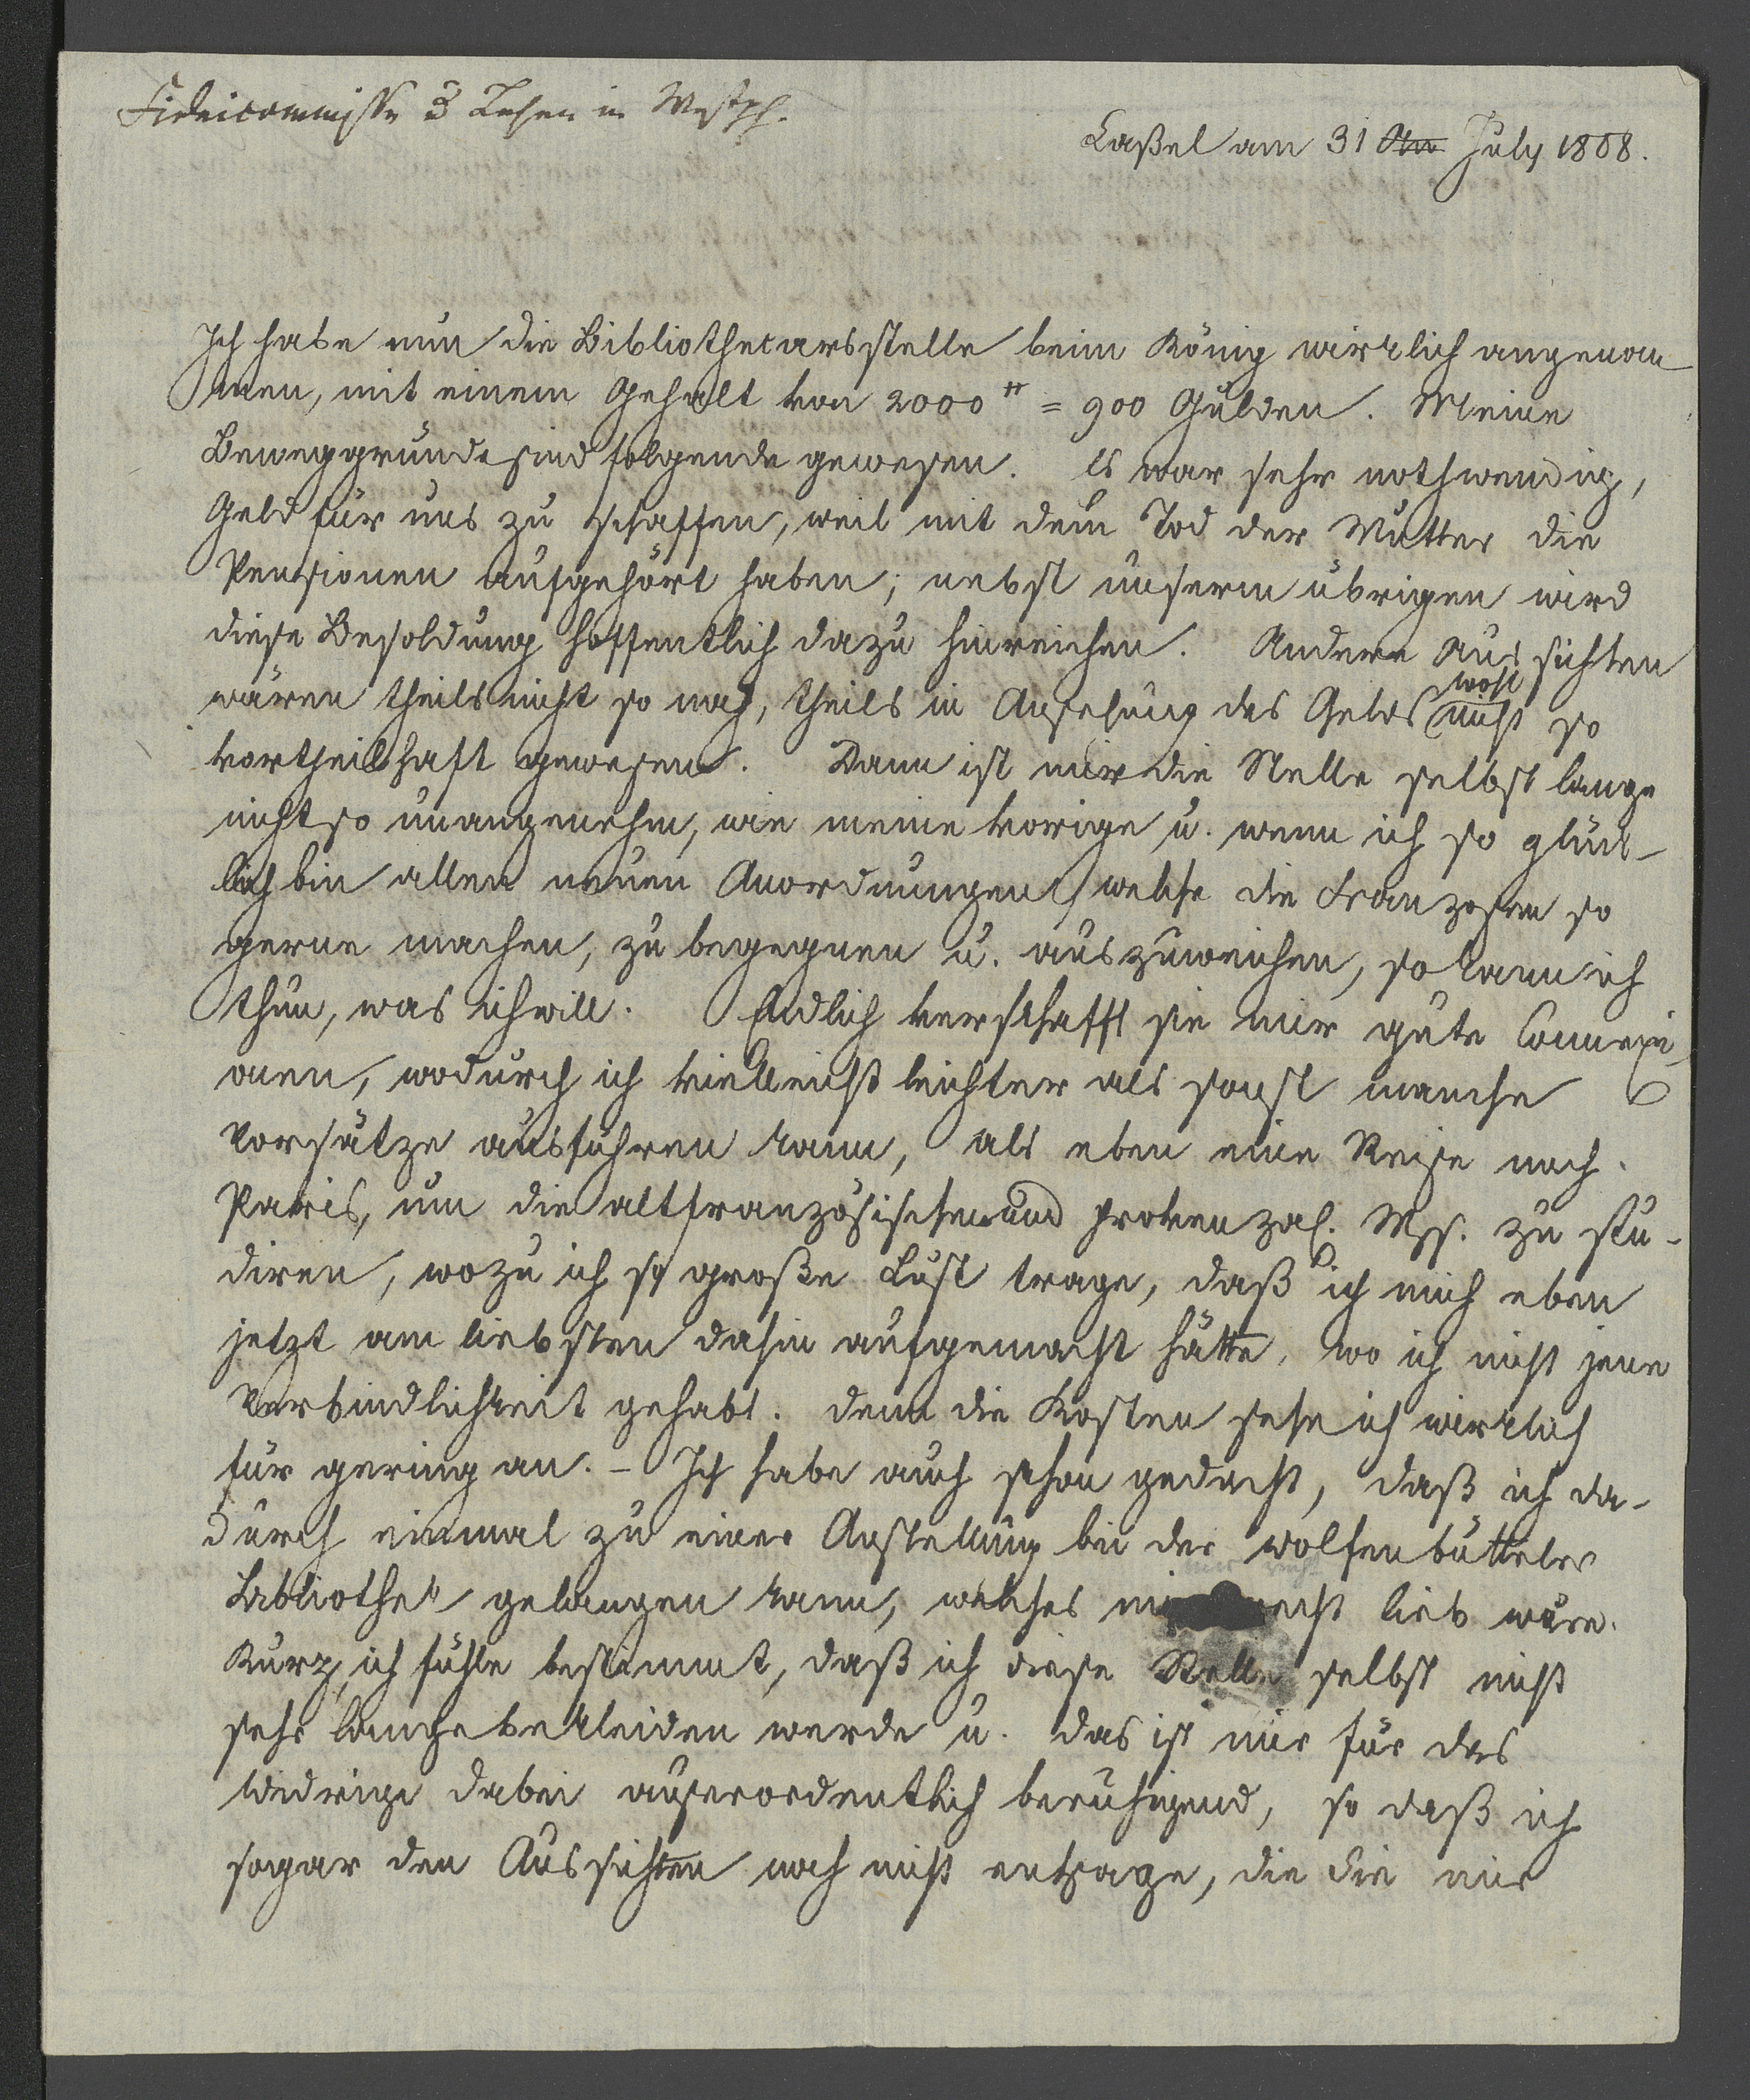 Fideicommisse & Lehen in Westph.
Caßel am 31 Au July 1808.
Ich habe nun die Bibliothecarsstelle beim König wirklich angenom
men, mit einem Gehalt von 2000 # = 900 Gulden. Meine
Beweggründe sind folgende gewesen. Es war sehr nothwendig,
Geld für uns zu schaffen, weil mit dem Tod der Mutter die
Pensionen aufgehört haben; nebst unserm übrigen wird
diese Besoldung hoffentlich dazu hinreichen. Andere Aussichten
wären theils nicht so nah, theils in Ansehung des Gelds wohl nicht so
vortheilhaft gewesen. Dann ist mir die Stelle selbst lange
nicht so unangenehm, wie meine vorige u. wenn ich so glück-
lich bin allen neuen Anordnungen, welche die Franzosen so
gerne machen, zu begegnen u. auszuweichen, so kann ich
thun, was ich will. Endlich verschafft sie mir gute Connexi
onen, wodurch ich vielleicht leichter als sonst manche
Vorsätze ausführen kann, als eben eine Reise nach
Paris, um die altfranzösischen und provenzal. Mss. zu stu-
diren, wozu ich so große Lust trage, daß ich mich eben
jetzt am liebsten dahin aufgemacht hätte, wo ich nicht jene
Verbindlichkeit gehabt. denn die Kosten sehe ich wirklich
für gering an. – Ich habe auch schon gedacht, daß ich da-
durch einmal zu einer Anstellung bei der wolfenbütteler
Bibliothek gelangen kann, welches mir recht lieb wäre.
Kurz, ich fühle bestimmt, daß ich diese Stelle selbst nicht
sehr lange bekleiden werde u. das ist mir für das
Widrige dabei außerordentlich beruhigend, so daß ich
sogar den Aussichten noch nicht entsage, die Sie mir